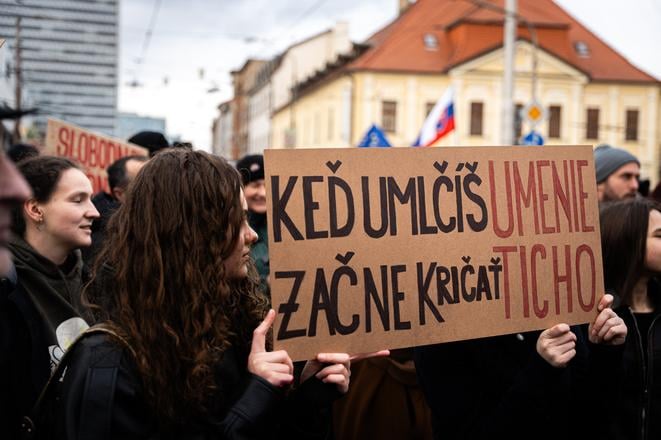 KEĎ UMLČÍŠ UMENIE
ZAČNE KRIČAŤ TICHO